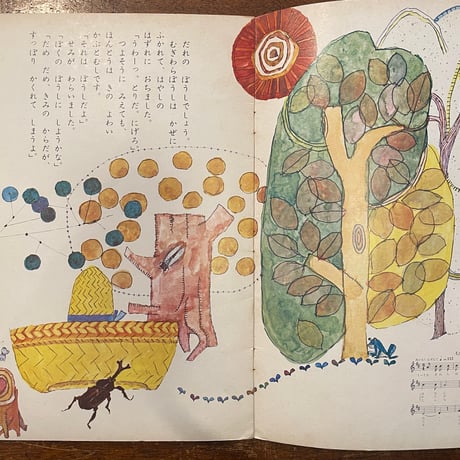 だれの ぼうしでしょう。
むぎわらぼうしは かぜに
ふかれて、はやしの
はずれに おちました。
「うわーっ、とりだ、にげろ」
つよそうに みえても、
ほんとうは きの よわい
かぶとむしです。
「それは ぼうしだよ」
せみが わらいました。
「ぼくの ぼうしに しようかな」
「だめ だめ きみの からだが、
すっぽり かくれて しまうよ」